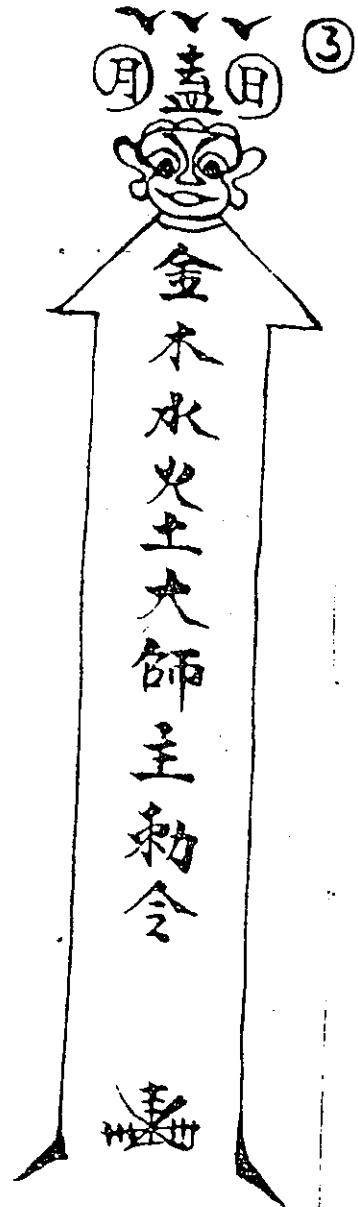 ③
月 盖 日
金木水火土大師主勅令